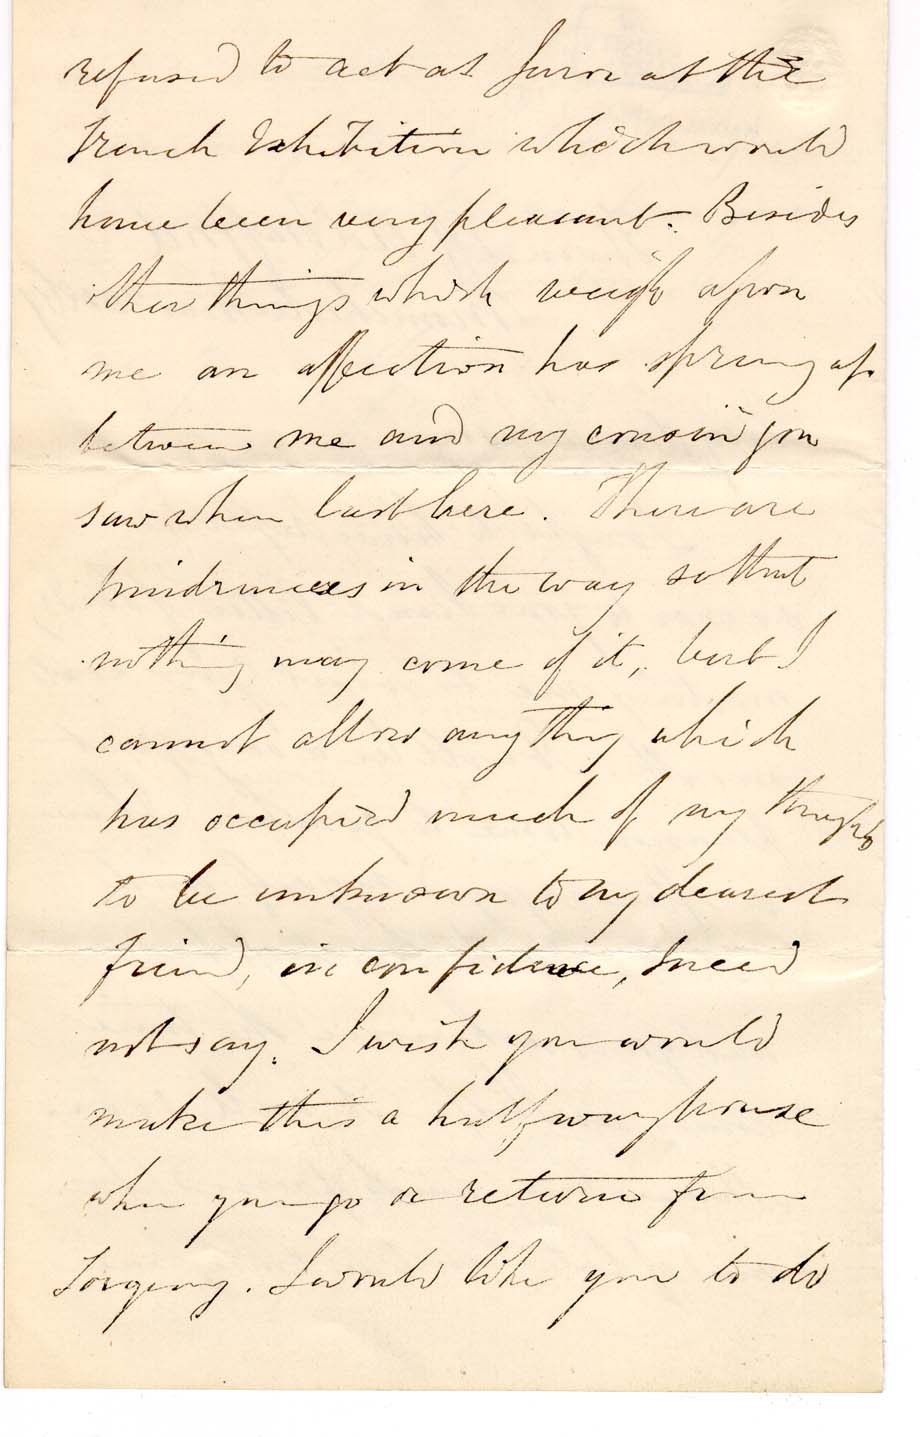 refused to act as Juror at the
French Exhibition which would
have been very pleasant. Besides
other things which weigh upon
me an affection has sprung up
between me and my cousin you
saw when last here. There are
hindrances in the way so that
nothing may come of it, but I
cannot allow anything which
has occupied much of my thoughts
to be unknown to my dearest
friend, in confidence, I need
not say. I wish you would
make this a halfway house
when you go or return from
Torquay. I would like you to do